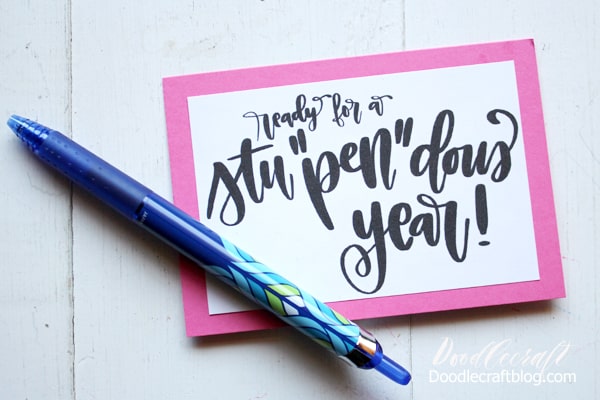 ready for a
stu"pen"dous
year!
Doodlecraft
Doodlecraftblog.com